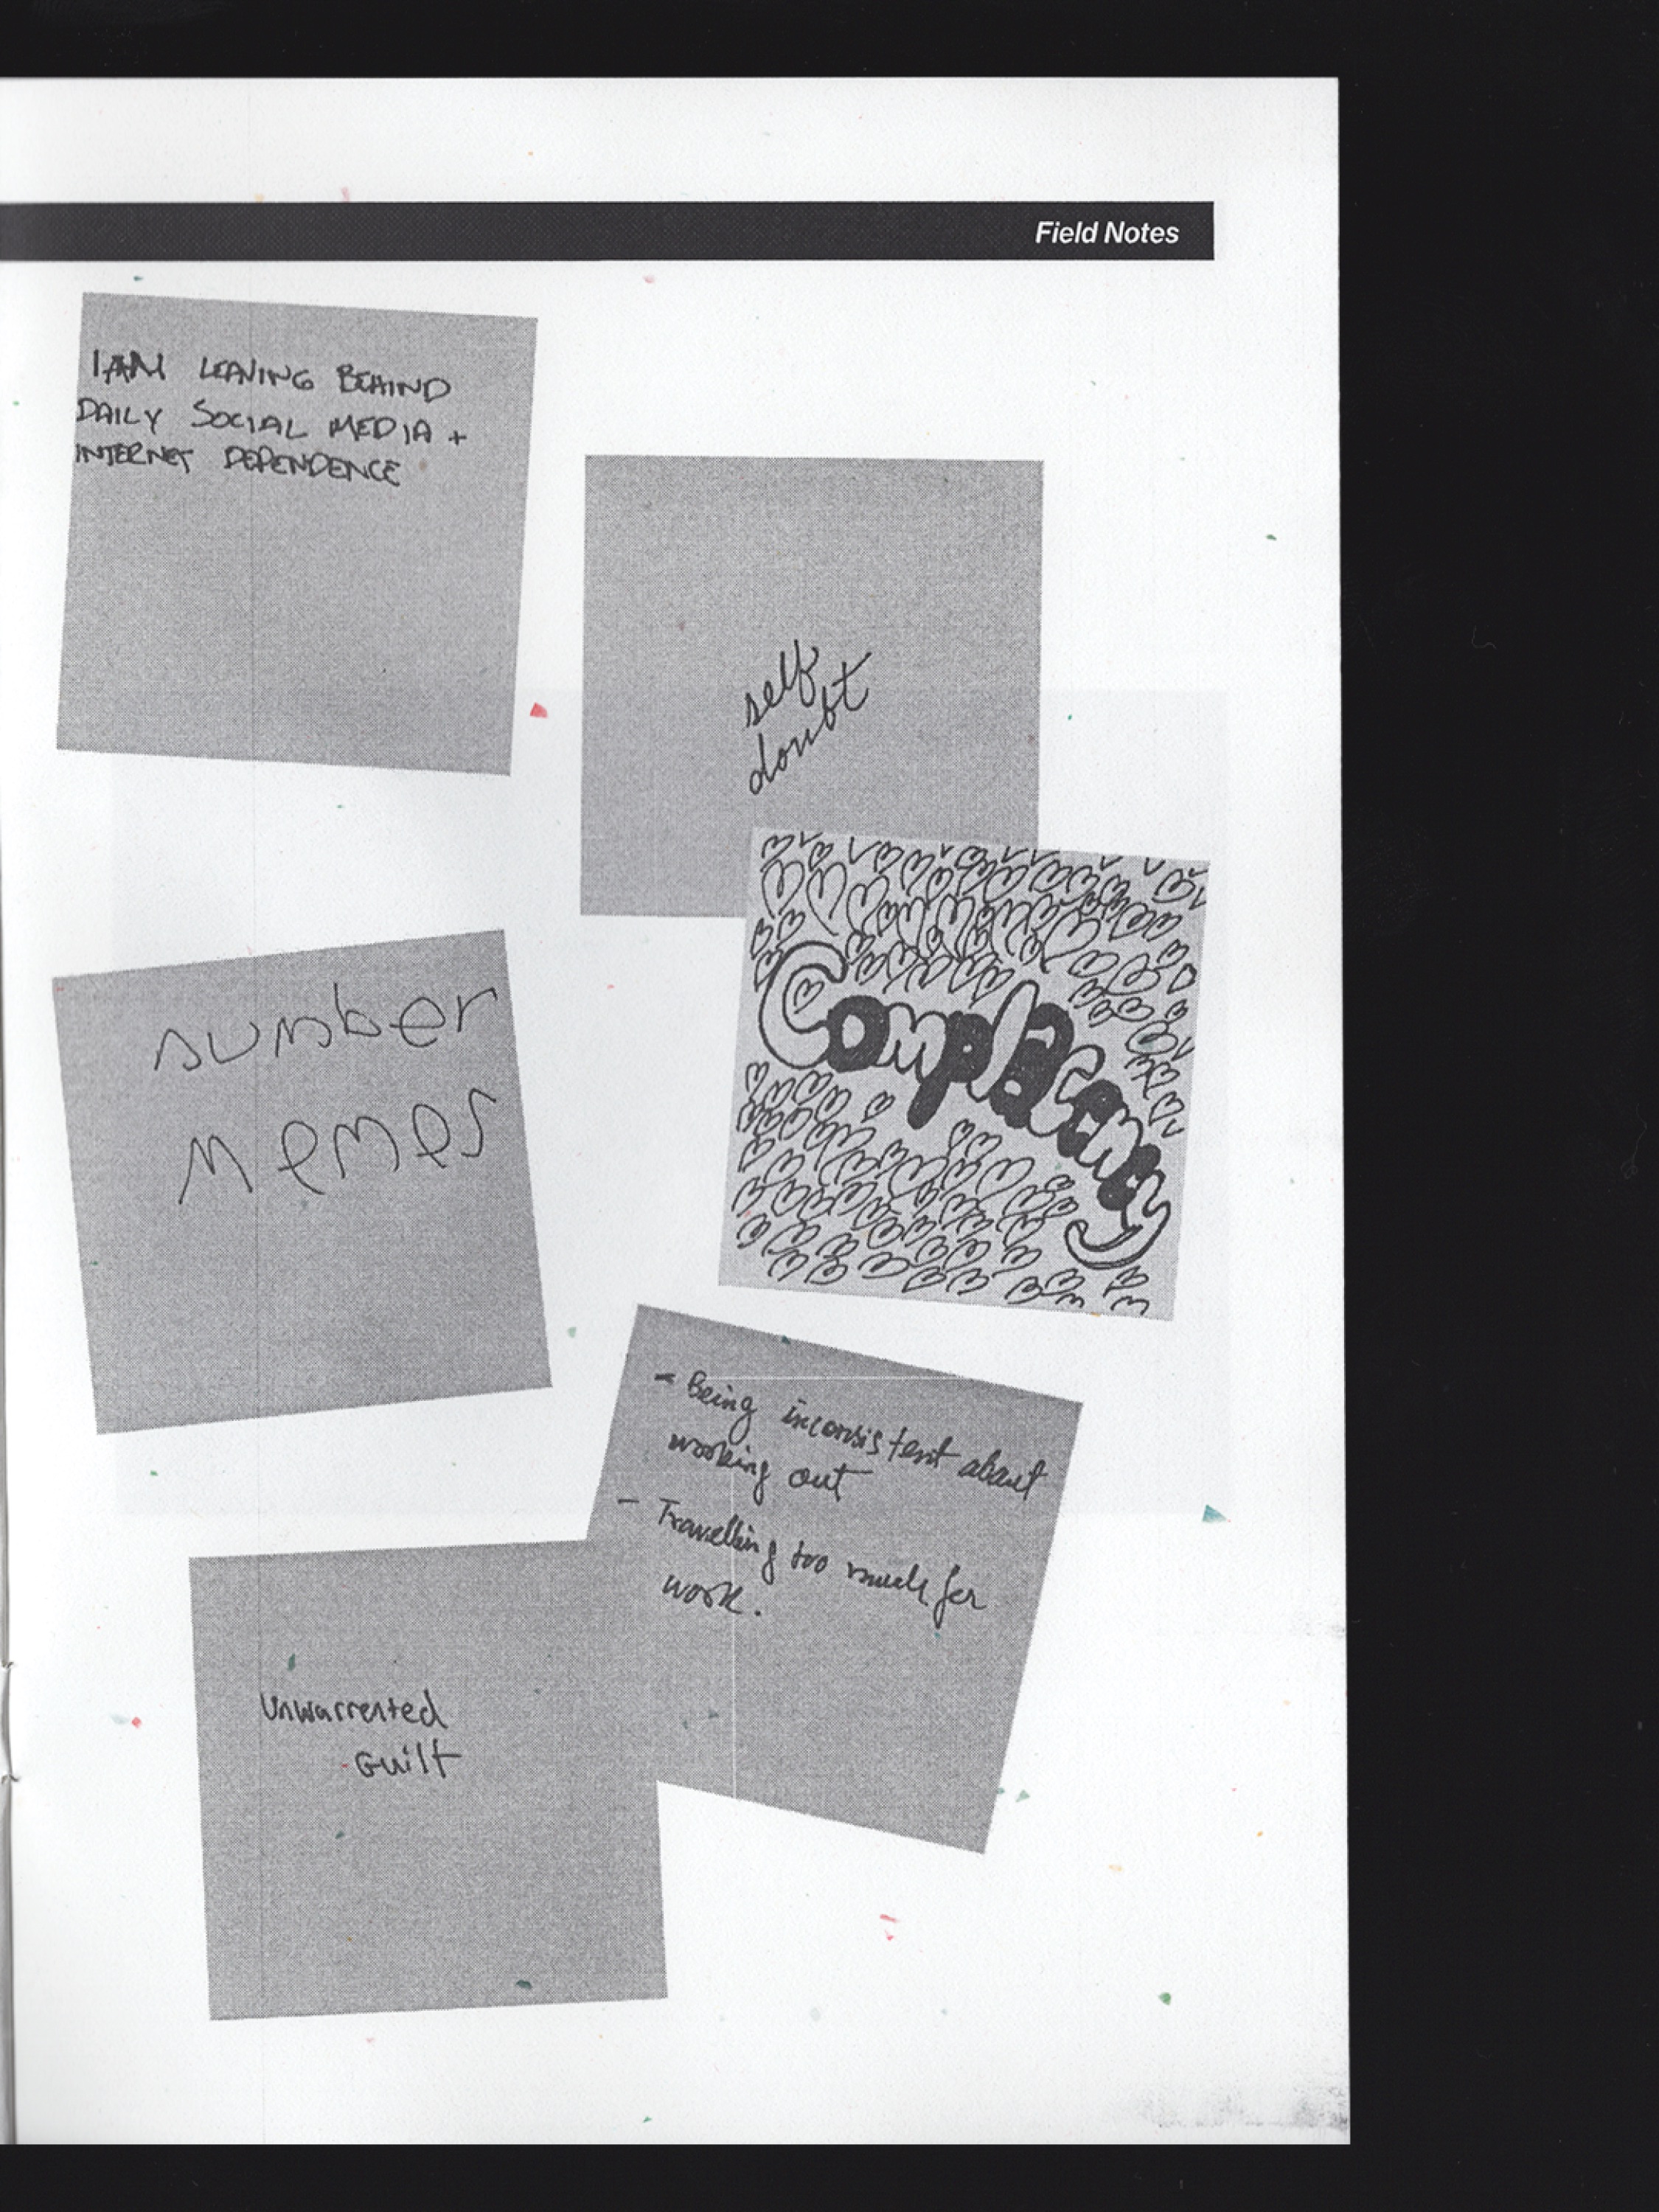 Field Notes
I AM LEAVING BEHIND
DAILY SOCIAL MEDIA +
INTERNET DEPENDENCE
self
doubt
number
memes
Complacency
- Being inconsistent about
working out
- Travelling too much for
work.
Unwarrented
Guilt